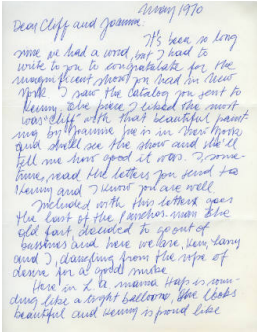 May 1970
Dear Cliff and Joanna.
It's been so long
since we had a word, but I had to
write to you to congratulate for the
magnificent show you had in New
York. I saw the catalog you sent to
Kenny. The piece I liked the most
was "Cliff" with that beautiful paint
ing by Joanna. She is in New York
and shall see the show and she'll
tell me how good it was. I some-
time, read the letters you send to
Kenny and I know you are well
Included with this letter goes
the last of the the
old fart, decided to go out of
bussines and here we are, Ken, Larry
and I, dangling from the rope of
desire for a good smoke
Here in L.A. mama is roun-
ding like a bright balloon, she looks
beautiful and Kenny is proud like